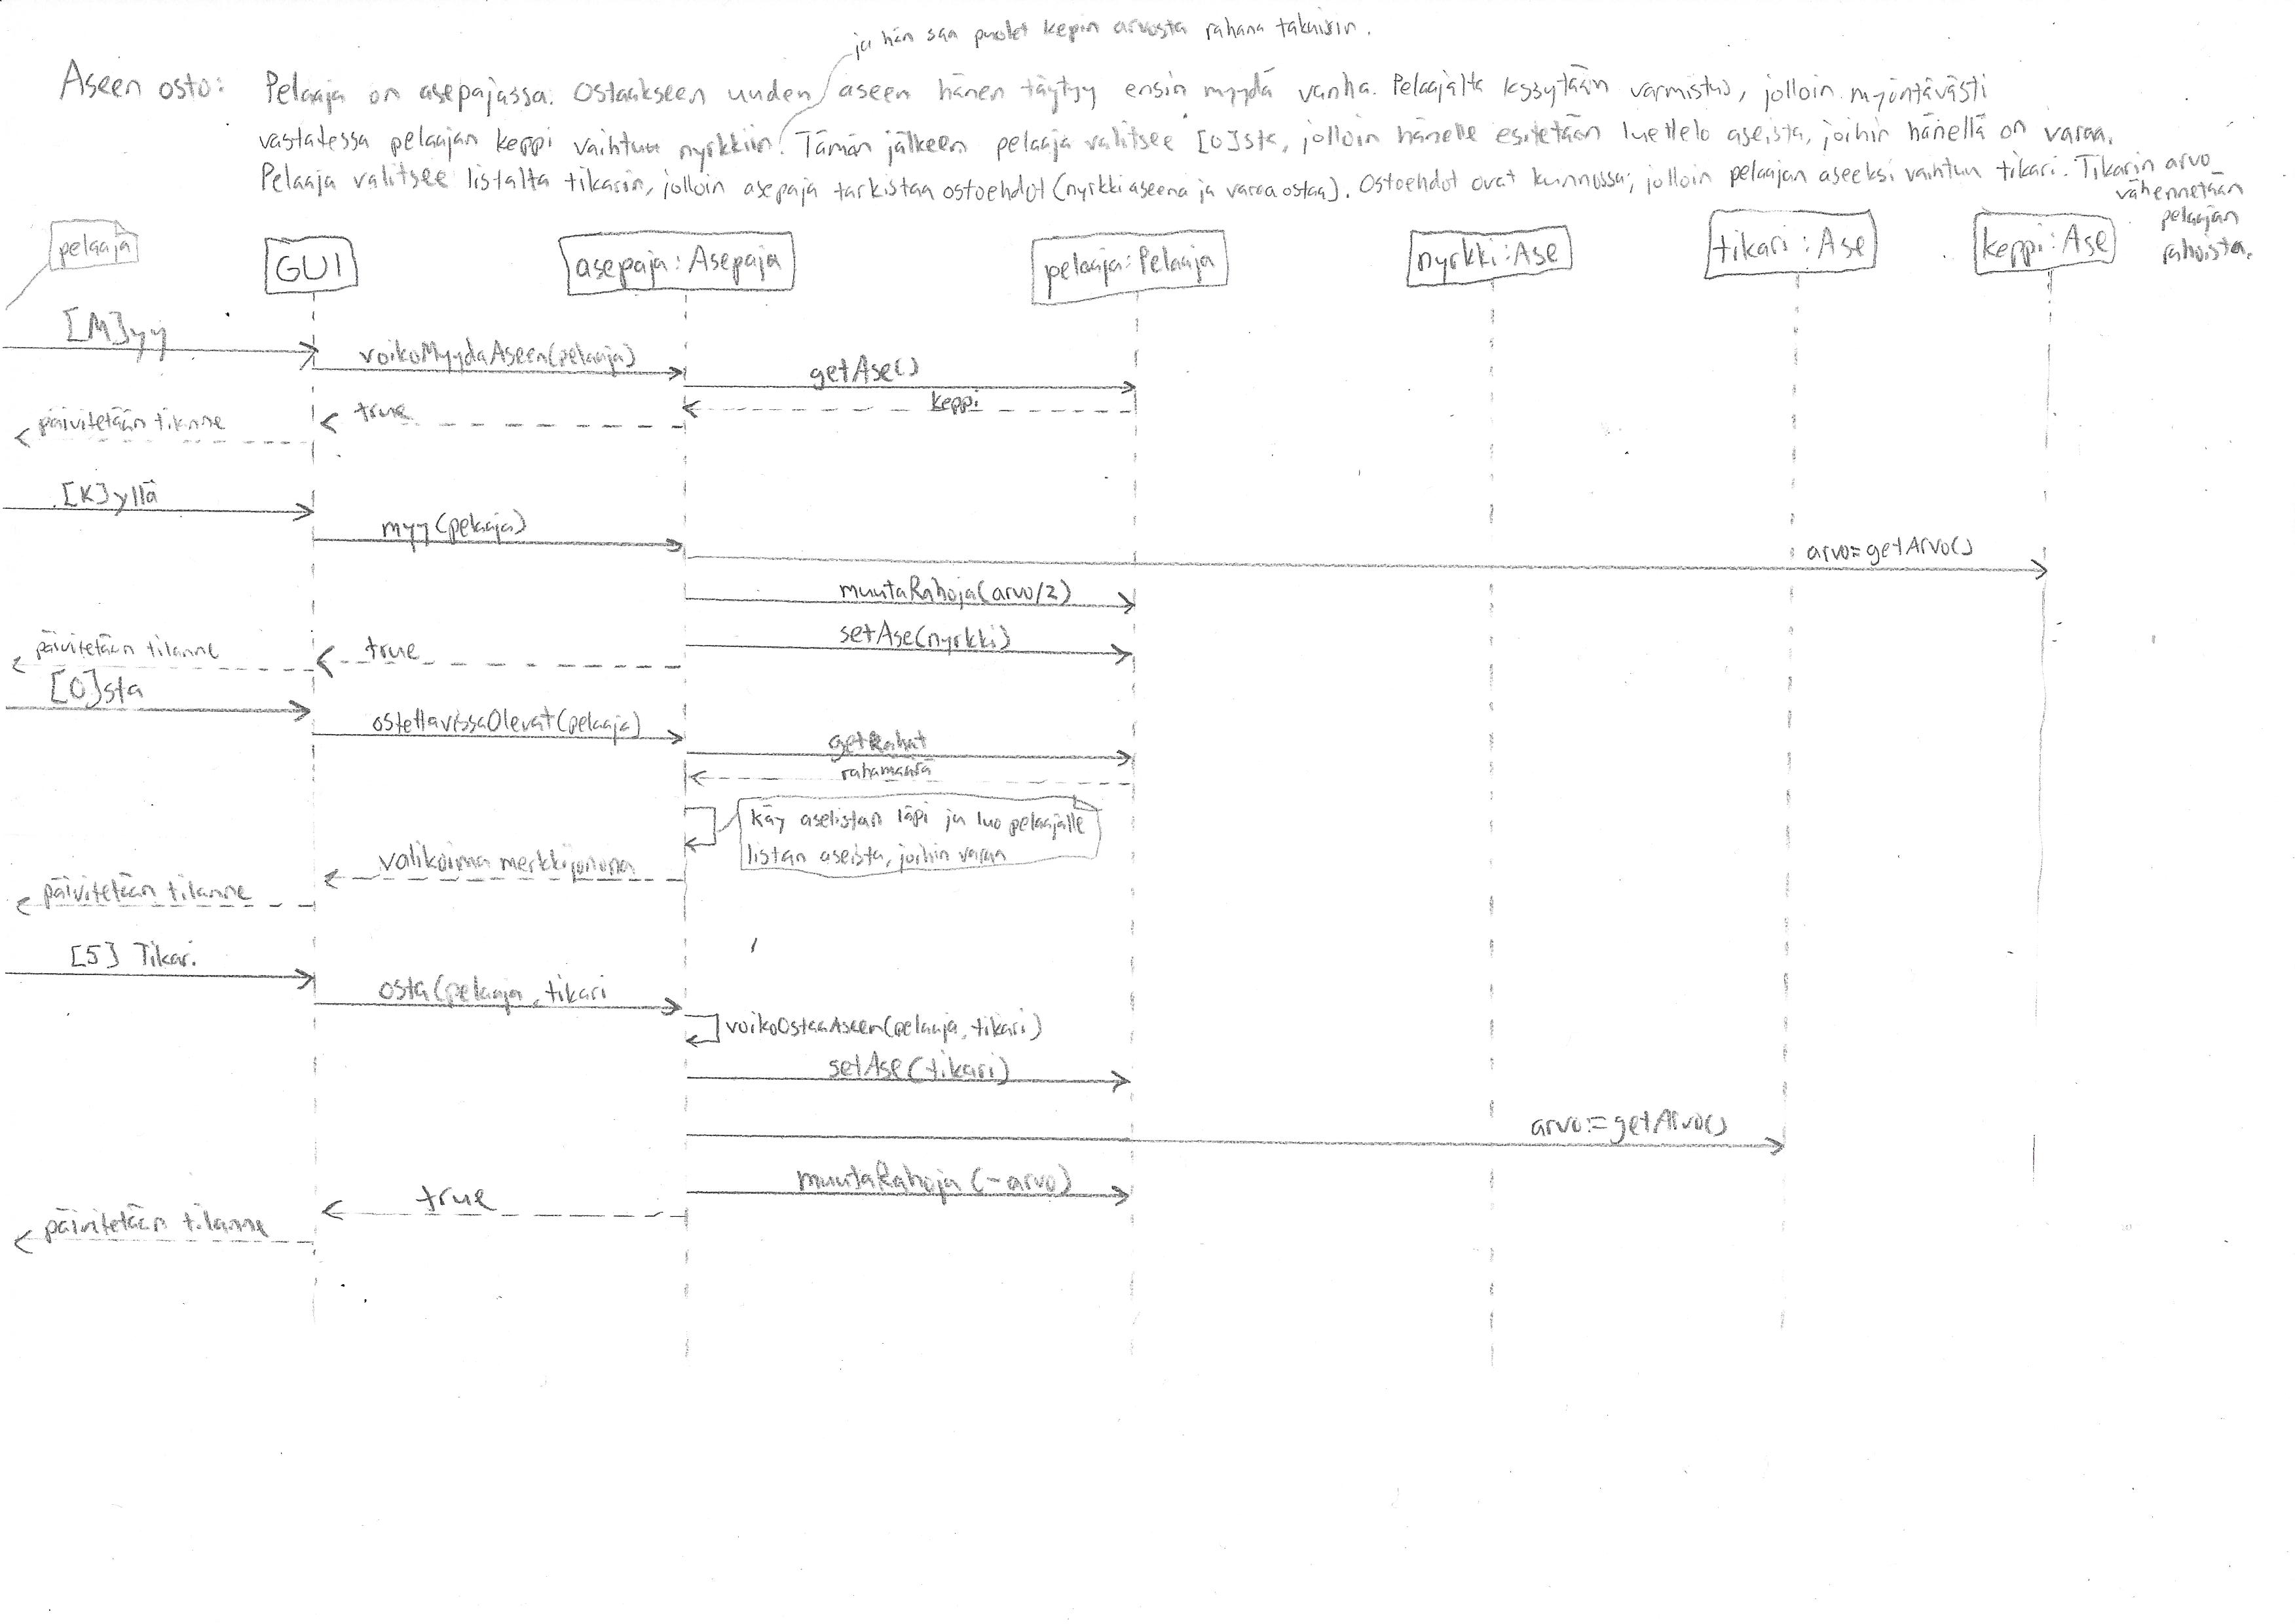 ja hän saa puolet kepin arvosta rahana takaisin.
Aseen osto: Pelaaja on asepajassa. Ostaakseen uuden aseen hänen täytyy ensin myydä vanha. Pelaajalta kysytään varmistus, jolloin myöntävästi
vastatessa pelaajan keppi vaihtuu nyrkkiin. Tämän jälkeen pelaaja valitsee [O]sta, jolloin hänelle esitetään luettelo aseista, joihin hänellä on varaa.
Pelaaja valitsee listalta tikarin, jolloin asepaja tarkistaa ostoehdot (nyrkki aseena ja varaa ostaa). Ostoehdot ovat kunnossa, jolloin pelaajan aseeksi vaihtuu tikari. Tikarin arvo
vähennetään
pelaajan
rahoista.
pelaaja
GUI
asepaja:Asepaja
pelaaja:Pelaaja
nyrkki:Ase
tikari:Ase
keppi:Ase
[M]yy
voikoMyydaAseen(pelaaja)
getAse()
keppi
true
päivitetään tilanne
[K]yllä
myy(pelaaja)
arvo=getArvo()
muutaRahoja(arvo/2)
setAse(nyrkki)
true
päivitetään tilanne
[O]sta
ostettavissaOlevat(pelaaja)
getRahat
rahamäärä
käy aselistan läpi ja luo pelaajalle
listan aseista, joihin varaa
valikoima merkkijonona
päivitetään tilanne
[5] Tikari
osta(pelaaja, tikari
voikoOstaaAseen(pelaaja, tikari)
setAse(tikari)
arvo:=getArvo()
muutaRahoja(-arvo)
true
päivitetään tilanne